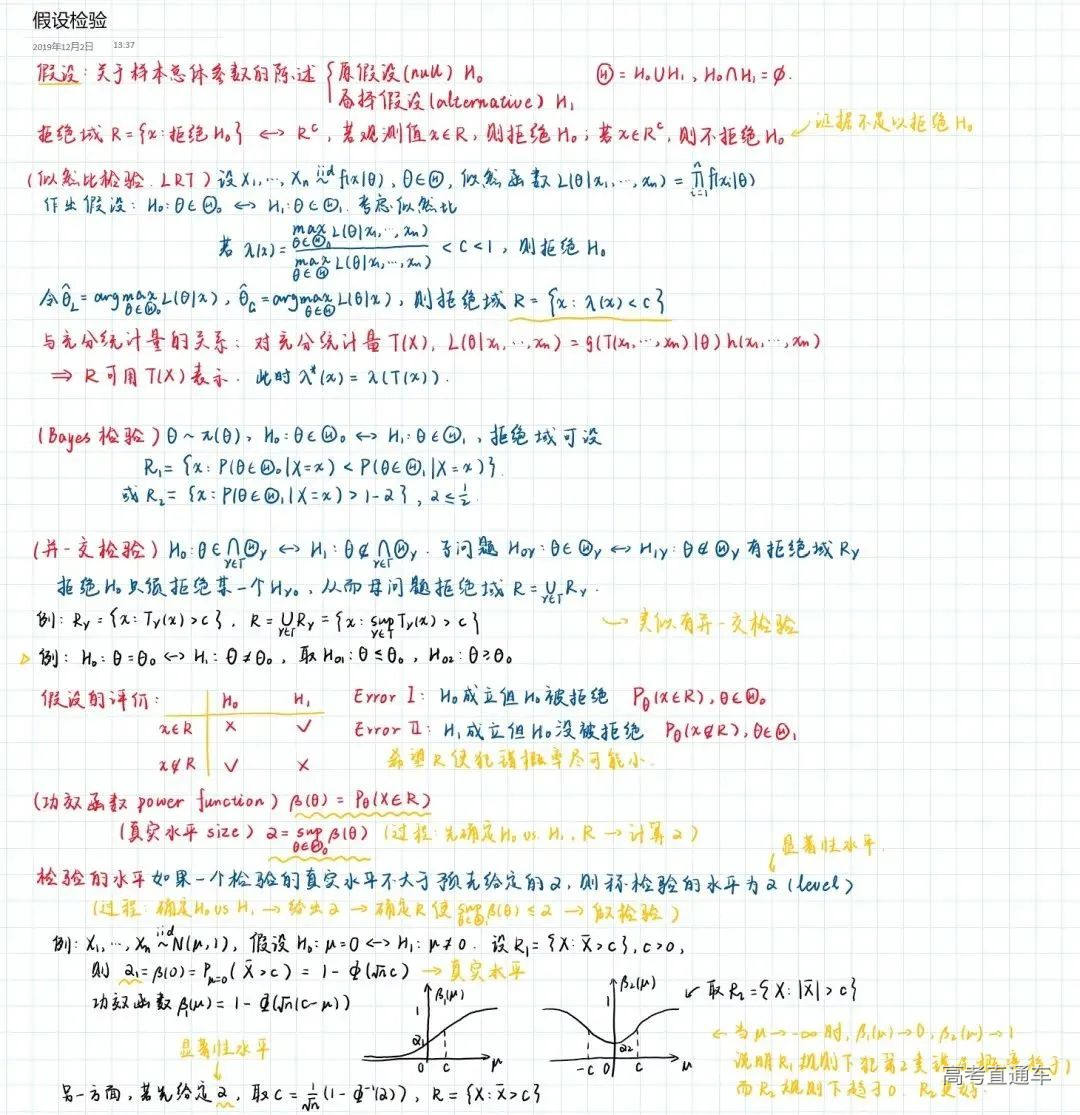 假设检验
2019年12月2日 13:37
假设：关于样本总体参数的陈述 { 原假设(null) H₀ Ⓗ = H₀∪H₁, H₀∩H₁=∅.
备择假设(alternative) H₁
拒绝域 R={x:拒绝H₀} ↔ Rᶜ, 若观测值x∈R, 则拒绝H₀; 若x∈Rᶜ, 则不拒绝H₀ ↙ 证据不足以拒绝H₀
(似然比检验.LRT) 设X₁,…,Xₙ iid~ f(x|θ), θ∈Ⓗ, 似然函数L(θ|x₁,…,xₙ) = ∏ᵢ₌₁ⁿ f(xᵢ|θ)
作出假设: H₀:θ∈Ⓗ₀ ↔ H₁:θ∈Ⓗ₁. 考虑似然比
若 λ(x) = max_{θ∈Ⓗ₀} L(θ|x₁,…,xₙ) / max_{θ∈Ⓗ} L(θ|x₁,…,xₙ) < C < 1, 则拒绝H₀
令θ̂_L = argmax_{θ∈Ⓗ₀} L(θ|x), θ̂_G = argmax_{θ∈Ⓗ} L(θ|x), 则拒绝域 R = {x: λ(x)<c}
与充分统计量的关系: 对充分统计量T(X), L(θ|x₁,…,xₙ) = g(T(x₁,…,xₙ)|θ)h(x₁,…,xₙ)
⇒ R可用T(X)表示. 此时λ*(x) = λ(T(x)).
(Bayes检验) θ~π(θ), H₀:θ∈Ⓗ₀ ↔ H₁:θ∈Ⓗ₁, 拒绝域可设
R₁={x: P(θ∈Ⓗ₀|X=x) < P(θ∈Ⓗ₁|X=x)}.
或R₂= {x: P(θ∈Ⓗ₁|X=x)>1-α}, α≤½.
(并-交检验) H₀:θ∈⋂_{γ∈Γ}Ⓗγ ↔ H₁:θ∉⋂_{γ∈Γ}Ⓗγ. 子问题H₀γ:θ∈Ⓗγ ↔ H₁γ:θ∉Ⓗγ有拒绝域Rγ
拒绝H₀只须拒绝某一个Hγ₀, 从而母问题拒绝域 R=⋃_{γ∈Γ}Rγ.
例: Rγ={x:Tγ(x)>c}, R=⋃_{γ∈Γ}Rγ={x: sup_{γ∈Γ}Tγ(x)>c} ↝ 类似有并-交检验
▷ 例: H₀:θ=θ₀ ↔ H₁:θ≠θ₀, 取H₀₁:θ≤θ₀, H₀₂:θ≥θ₀
假设的评价: H₀ H₁ Error I: H₀成立但H₀被拒绝 P_θ(x∈R), θ∈Ⓗ₀
x∈R × ✓ Error II: H₁成立但H₀没被拒绝 P_θ(x∉R), θ∈Ⓗ₁
x∉R ✓ × 希望R使犯错概率尽可能小.
(功效函数 power function) β(θ) = P_θ(X∈R)
(真实水平 size) α=sup_{θ∈Ⓗ₀} β(θ) (过程: 先确定H₀ vs. H₁, R → 计算α)
显著性水平.
检验的水平 如果一个检验的真实水平不大于预先给定的α, 则称检验的水平为α (level)
(过程: 确定H₀ vs H₁ → 给出α → 确定R使sup_{θ∈Ⓗ₀}β(θ)≤α → 做检验)
例: X₁,…,Xₙ iid~ N(μ,1), 假设 H₀: μ=0 ↔ H₁: μ≠0. 设R₁={X: X̄>c}, c>0,
则 α₁=β(0)=P_{μ=0}(X̄>c) = 1-Φ(√n c) → 真实水平
功效函数β₁(μ)= 1-Φ(√n(c-μ))
β₁(μ) 1 α₁ 0 c μ
β₂(μ) 1 α₂ -c 0 c μ
↙ 取R₂={X: |X̄|>c}
← 当μ→-∞时, β₁(μ)→0, β₂(μ)→1
说明R₁规则下犯第2类错误概率趋于1
而R₂规则下趋于0. R₂更好.
显著性水平
另一方面, 若先给定α, 取c=1/√n(1-Φ⁻¹(α)), R={X:X̄>c}
高考直通车